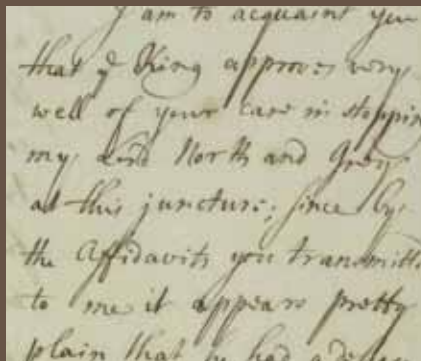 I am to acquaint you
that ye King approves very
well of your care in stoppin
my Lord North and Grey
at this juncture; since by
the Affidavits you transmitt
to me it appears pretty
plain that he had a des